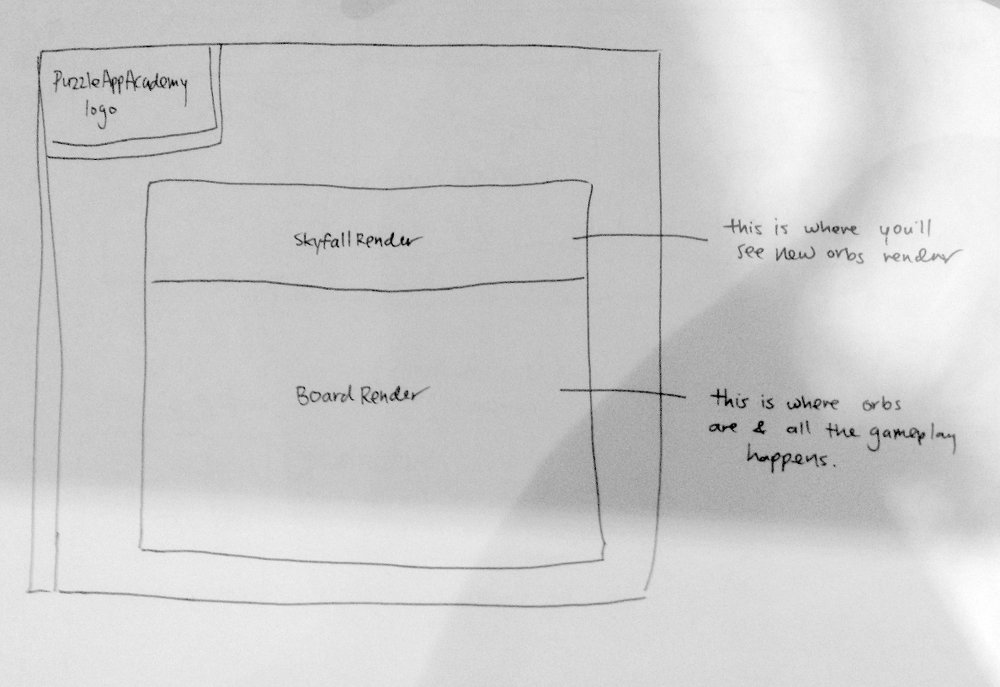 PuzzleAppAcademy
logo
SkyfallRender
this is where you'll
see new orbs render
BoardRender
this is where orbs
are & all the gameplay
happens.